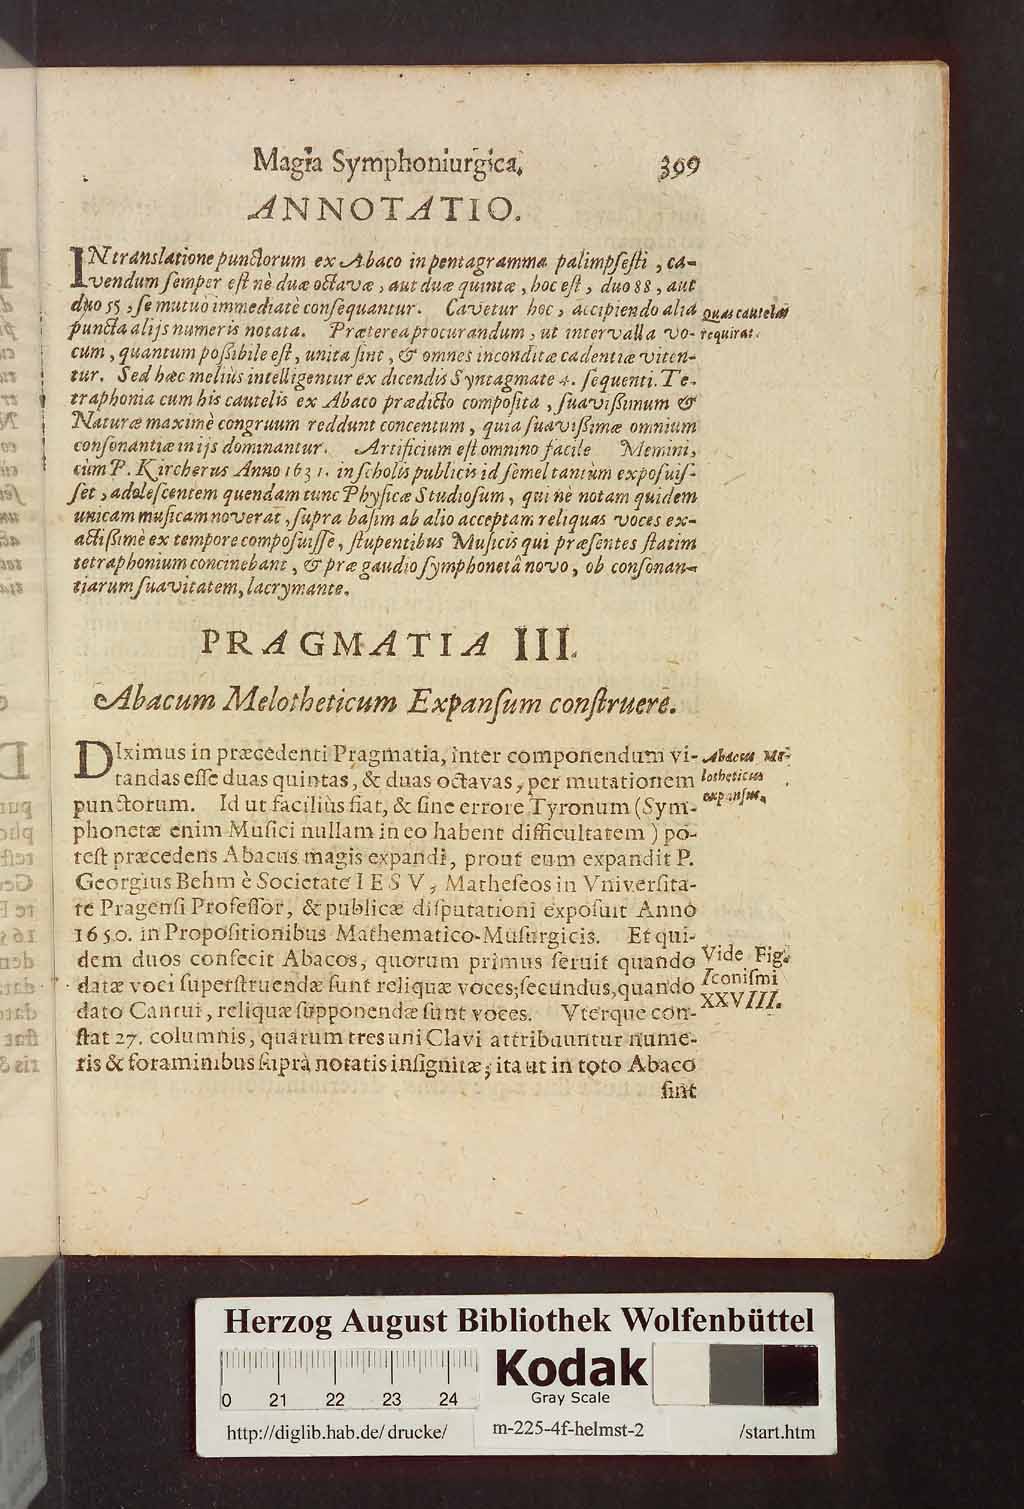 Magia Symphoniurgica. 399
ANNOTATIO.
IN translatione punctorum ex Abaco in pentagramma palimpsesti, ca-
vendum semper est nè duæ octavæ, aut duæ quintæ, hoc est, duo 88, aut
duo 55, se mutuò immediatè consequantur. Cavetur hoc, accipiendo alia
puncta alijs numeris notata. Præterea procurandum, ut intervalla vo-
cum, quantum poßibile est, unita sint, & omnes inconditæ cadentiæ viten-
tur. Sed hæc meliùs intelligentur ex dicendis Syntagmate 4. sequenti. Te-
traphonia cum his cautelis ex Abaco prædicto composita, suavißimum &
Naturæ maximè congruum reddunt concentum, quia suavißimæ omnium
consonantiæ in ijs dominantur. Artificium est omnino facile Memini,
cùm P. Kircherus Anno 1631. in scholis publicis id semel tantùm exposuis-
set, adolescentem quendam tunc Physicæ Studiosum, qui nè notam quidem
unicam musicam noverat, supra basim ab alio acceptam reliquas voces ex-
actißimè ex tempore composuisse, stupentibus Musicis qui præsentes statim
tetraphonium concinebant, & præ gaudio symphonetâ novo, ob consonan-
tiarum suavitatem, lacrymante.
Quas cautelas
requirat.
PRAGMATIA III.
Abacum Melotheticum Expansum construere.
DIximus in præcedenti Pragmatia, inter componendum vi-
tandas esse duas quintas, & duas octavas, per mutationem
punctorum. Id ut faciliùs fiat, & sine errore Tyronum (Sym-
phonetæ enim Musici nullam in eo habent difficultatem) po-
test præcedens Abacus magis expandi, prout eum expandit P.
Georgius Behm è Societate IESV, Matheseos in Vniversita-
te Pragensi Professor, & publicæ disputationi exposuit Anno
1650. in Propositionibus Mathematico-Musurgicis. Et qui-
dem duos confecit Abacos, quorum primus servit quando
datæ voci superstruendæ sunt reliquæ voces; secundus, quando
dato Cantui, reliquæ supponendæ sunt voces. Vterque con-
stat 27. columnis, quarum tres uni Clavi attribuuntur nume-
ris & foraminibus suprà notatis insignitæ; ita ut in toto Abaco
sint
Abacus Me-
lotheticus
expansus.
Vide Fig.
Iconismi
XXVIII.
Herzog August Bibliothek Wolfenbüttel
0 21 22 23 24
Kodak
Gray Scale
http://diglib.hab.de/drucke/ m-225-4f-helmst-2 /start.htm